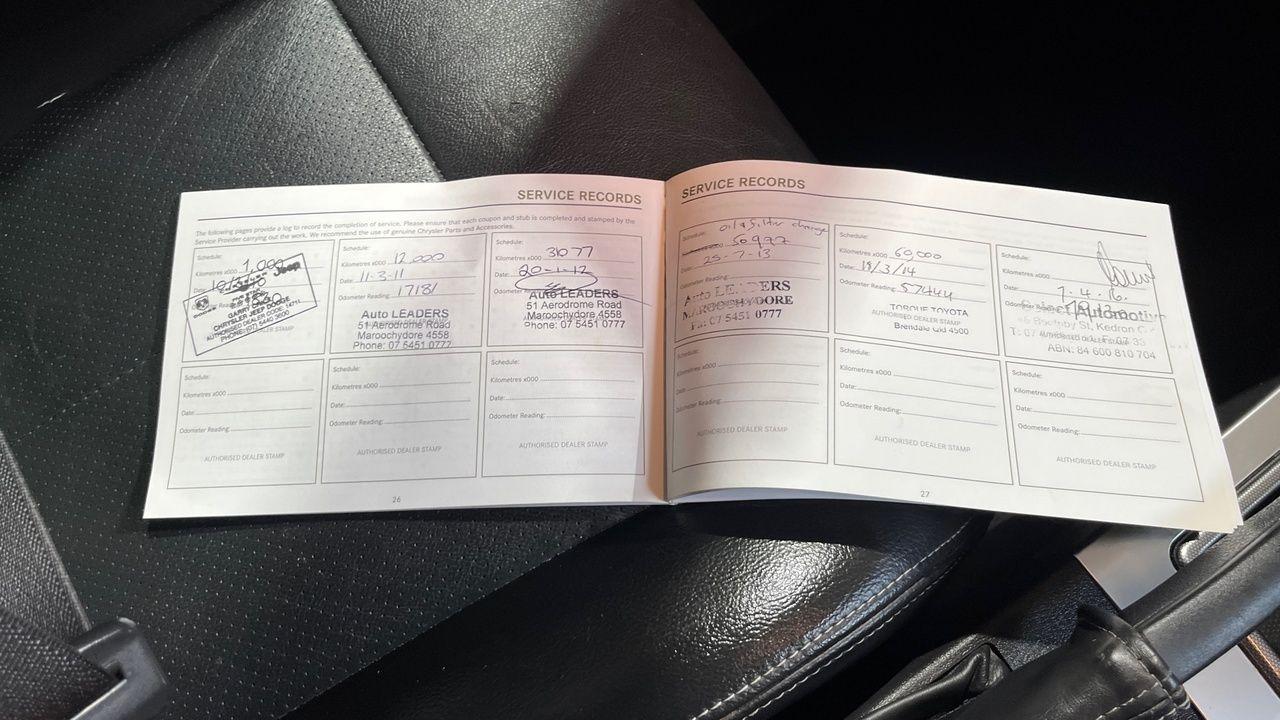 SERVICE RECORDS
The following pages provide a log to record the completion of service. Please ensure that each coupon and stub is completed and stamped by the
Service Provider carrying out the work. We recommend the use of genuine Chrysler Parts and Accessories.
Schedule:
Kilometres x000 1,000
Date:
Jeep
GARRY CROCK
CHRYSLER JEEP DODGE
AUTHORISED DEALER STAMP
Schedule:
Kilometres x000 12,000
Date: 11-3-11
Odometer Reading: 17181
Auto LEADERS
51 Aerodrome Road
Maroochydore 4558
Phone: 07 5451 0777
Schedule:
31077
Kilometres x000
Date: 20-1-12
Auto LEADERS
51 Aerodrome Road
Maroochydore 4558
Phone: 07 5451 0777
Schedule:
Kilometres x000
Date:
Odometer Reading:
AUTHORISED DEALER STAMP
Schedule:
Kilometres x000
Date:
Odometer Reading:
AUTHORISED DEALER STAMP
Schedule:
Kilometres x000
Date:
Odometer Reading:
AUTHORISED DEALER STAMP
26
SERVICE RECORDS
Schedule: oil & filter change
50997
25-7-13
Odometer Reading:
Auto LEADERS
MAROOCHYDORE
07 5451 0777
Schedule:
Kilometres x000 60,000
Date: 18/3/14
Odometer Reading: 57444
TORQUE TOYOTA
AUTHORISED DEALER STAMP
Brendale Qld 4500
Schedule:
Kilometres x000
Date: 7.4.16.
Automotive
Boothby St, Kedron
ABN: 84 600 810 704
Schedule:
Kilometres x000
Date:
Odometer Reading:
AUTHORISED DEALER STAMP
Schedule:
Kilometres x000
Date:
Odometer Reading:
AUTHORISED DEALER STAMP
Schedule:
Kilometres x000
Date:
Odometer Reading:
AUTHORISED DEALER STAMP
27